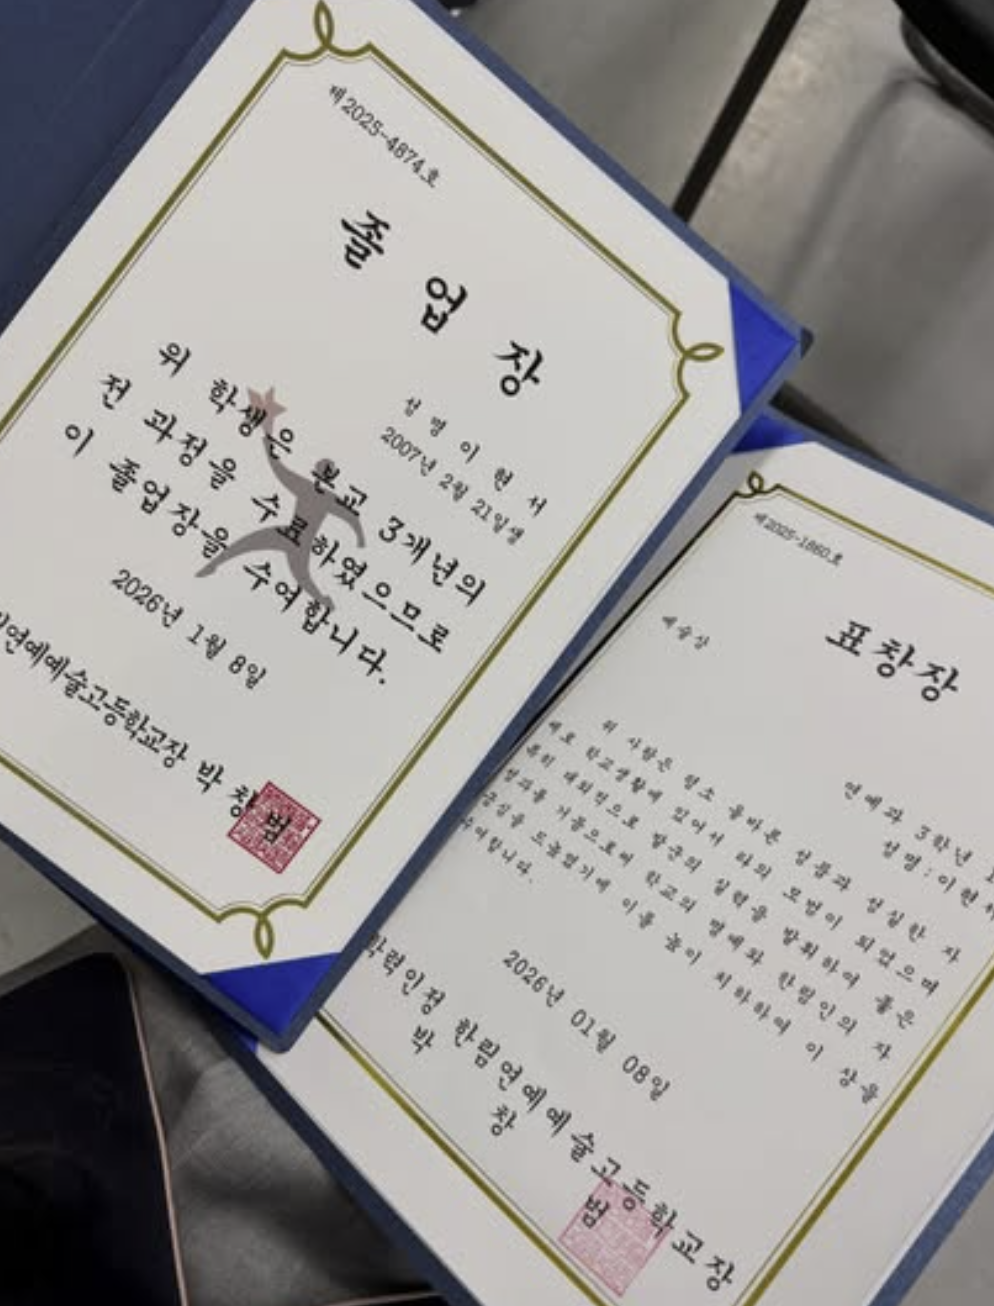 제2025-4874호
졸 업 장
성 명 이 현 서
2007년 2월 21일생
위 학생은 본교 3개년의
전 과정을 수료하였으므로
이 졸업장을 수여합니다.
2026년 1월 8일
연예예술고등학교장 박 창 범
제2025-1860호
예술상
표창장
연예과 3학년
성명:이현서
위 사람은 평소 올바른 성품과 성실한 자
세로 학교생활에 있어서 타의 모범이 되었으며
특히 대외적으로 발군의 실력을 발휘하여 좋은
성과를 거둠으로써 학교의 명예와 한림인의 자
긍심을 드높였기에 이를 높이 치하하여 이 상을
수여합니다.
2026년 01월 08일
학력인정 한림연예예술고등학교장
박 창 범